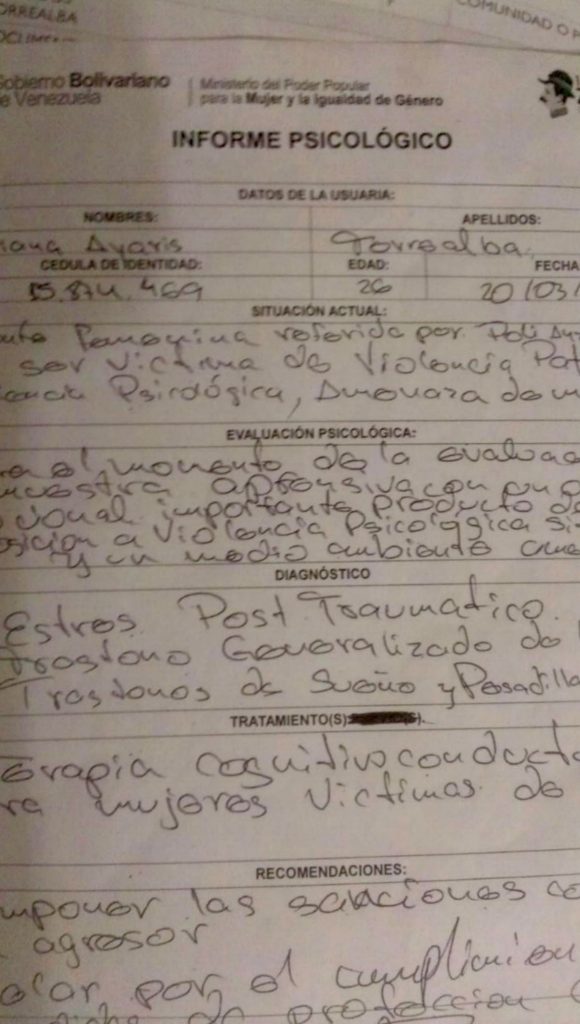 ORREALBA
COMUNIDAD O
Gobierno Bolivariano
de Venezuela
Ministerio del Poder Popular
para la Mujer y la Igualdad de Género
INFORME PSICOLÓGICO
DATOS DE LA USUARIA:
NOMBRES:
APELLIDOS:
iana Ayaris
Torrealba
CEDULA DE IDENTIDAD:
EDAD:
FECHA
15.874.469
26
20/03/
SITUACIÓN ACTUAL:
Femenina referida por
ser victima de Violencia Pat
encia Psicológica, Amenaza de m
EVALUACIÓN PSICOLÓGICA:
ra el momento de la evaluac
muestra aprensiva con un
cional importante producto de
osicion a Violencia Psicologica Si
y un medio ambiente
DIAGNÓSTICO
Estres Post Traumatico
Trastono Generalizado de
Trastonos de Sueño y Pesadilla
TRATAMIENTO(S)
erapia cognitivo conducta
ra mujeres Victimas de
RECOMENDACIONES:
mponer las sanciones co
agresor
elar por el cumplimien
de proteccion